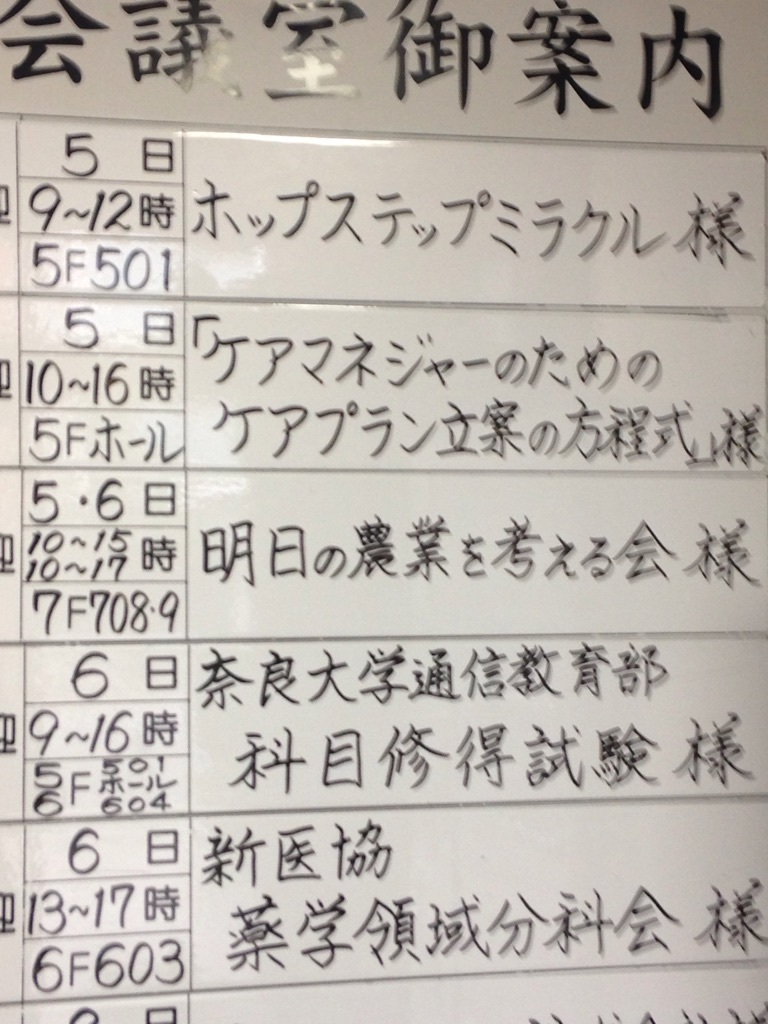 会議室御案内
5 日
9~12時
5F501
ホップステップミラクル 様
5 日
10~16時
5Fホール
「ケアマネジャーのための
ケアプラン立案の方程式」様
5・6 日
10~15
10~17 時
7F708・9
明日の農業を考える会 様
6 日
9~16時
5 6 F 501 ホール 604
奈良大学通信教育部
科目修得試験 様
6 日
13~17時
6F603
新医協
薬学領域分科会 様
日